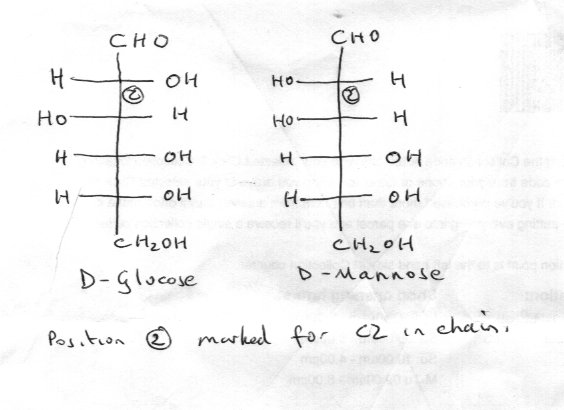 CHO CHO
H OH HO H
② ②
HO H HO H
H OH H OH
H OH H OH
CH2OH CH2OH
D-Glucose D-Mannose
Position ② marked for C2 in chain.